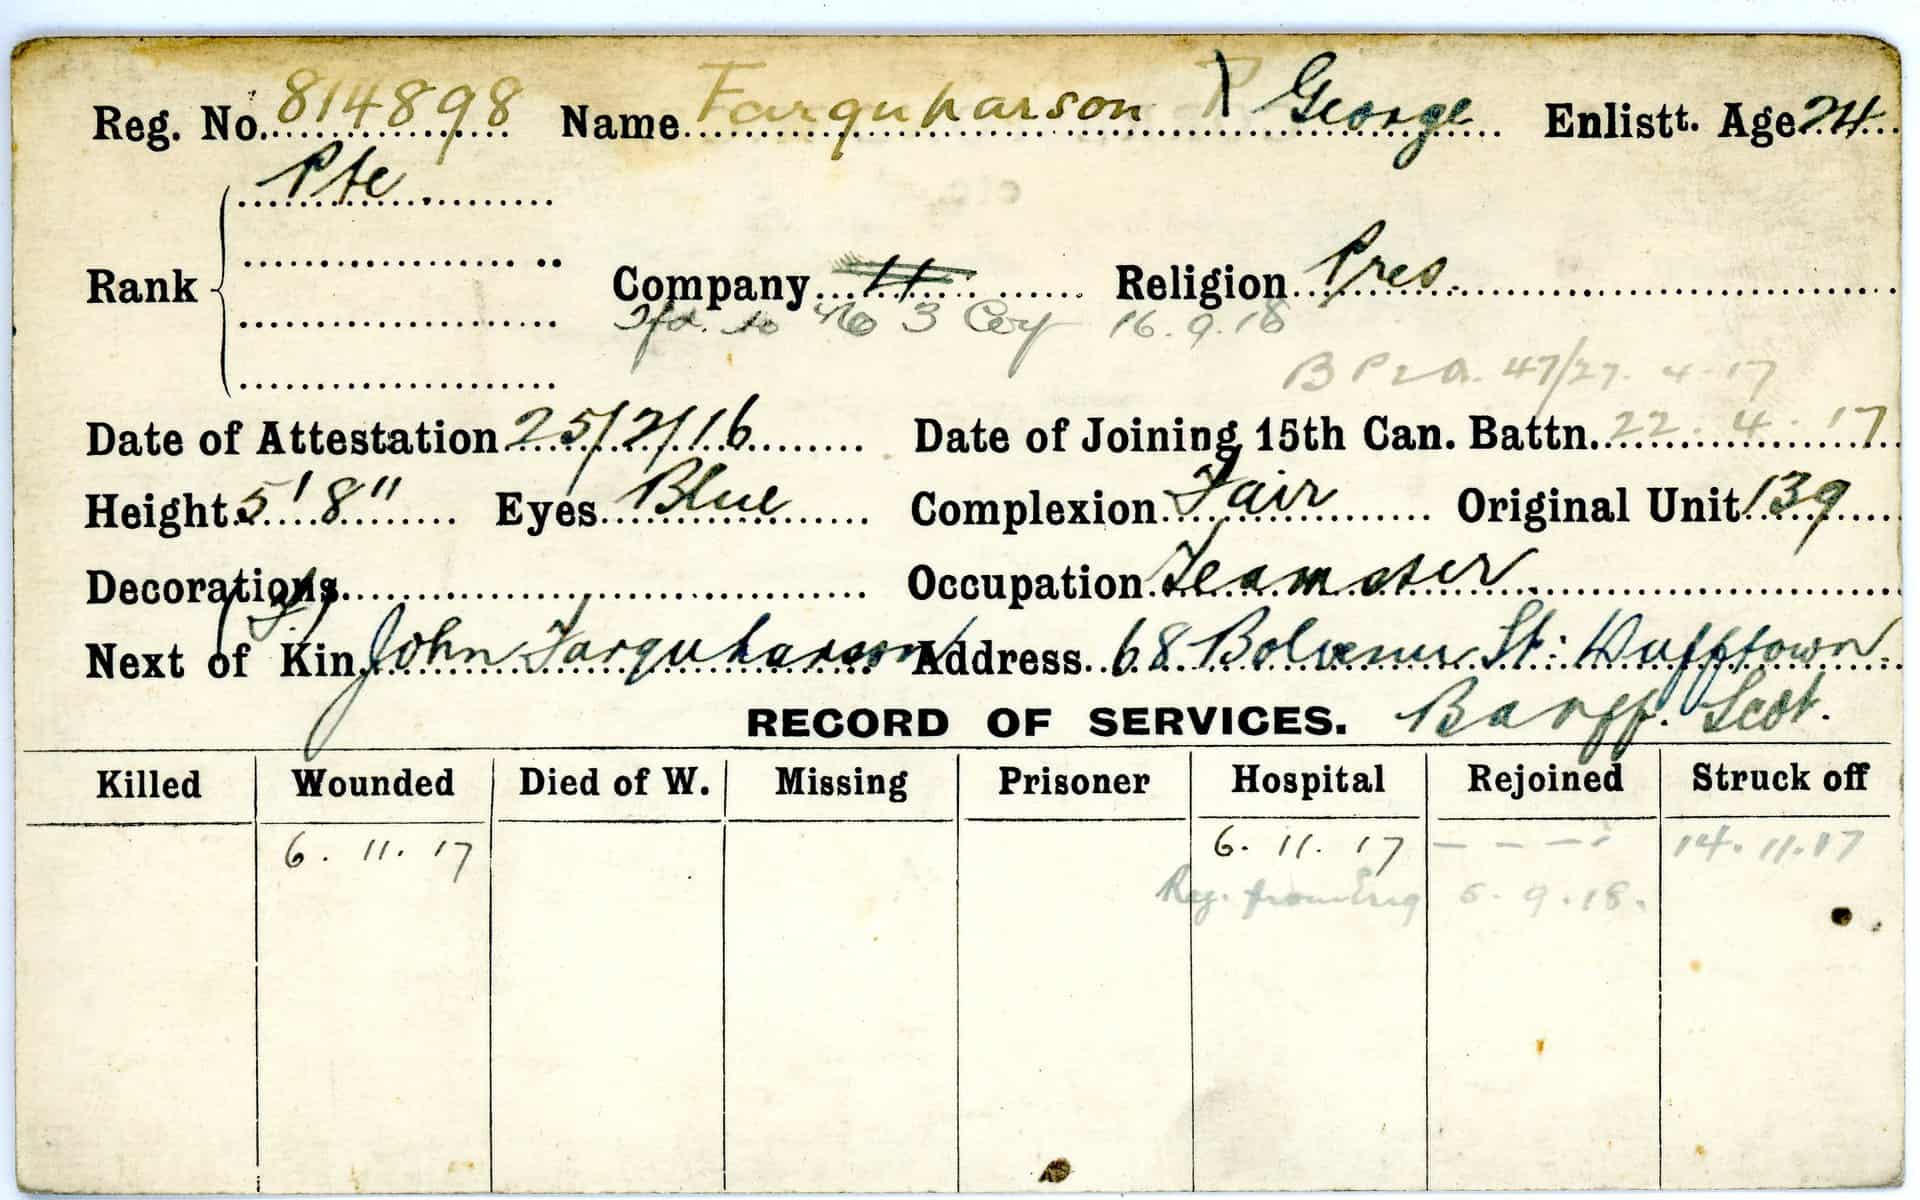 Reg. No. 814898 Name Farquharson George Enlistt. Age 24
Pte
Rank Company 4 Religion Pres.
Tfd. to No 3 Coy 16.9.18
47/27.4.17
Date of Attestation 25/2/16 Date of Joining 15th Can. Battn. 22.4.17
Height 5'8" Eyes Blue Complexion Fair Original Unit 139
Decorations Occupation Teamster
(F.)
Next of Kin John Farquharson Address 68 St: Dufftown
RECORD OF SERVICES. Banff. Scot.
Killed Wounded Died of W. Missing Prisoner Hospital Rejoined Struck off
6.11.17 6.11.17 - - - - 14.11.17
from Eng 5.9.18.